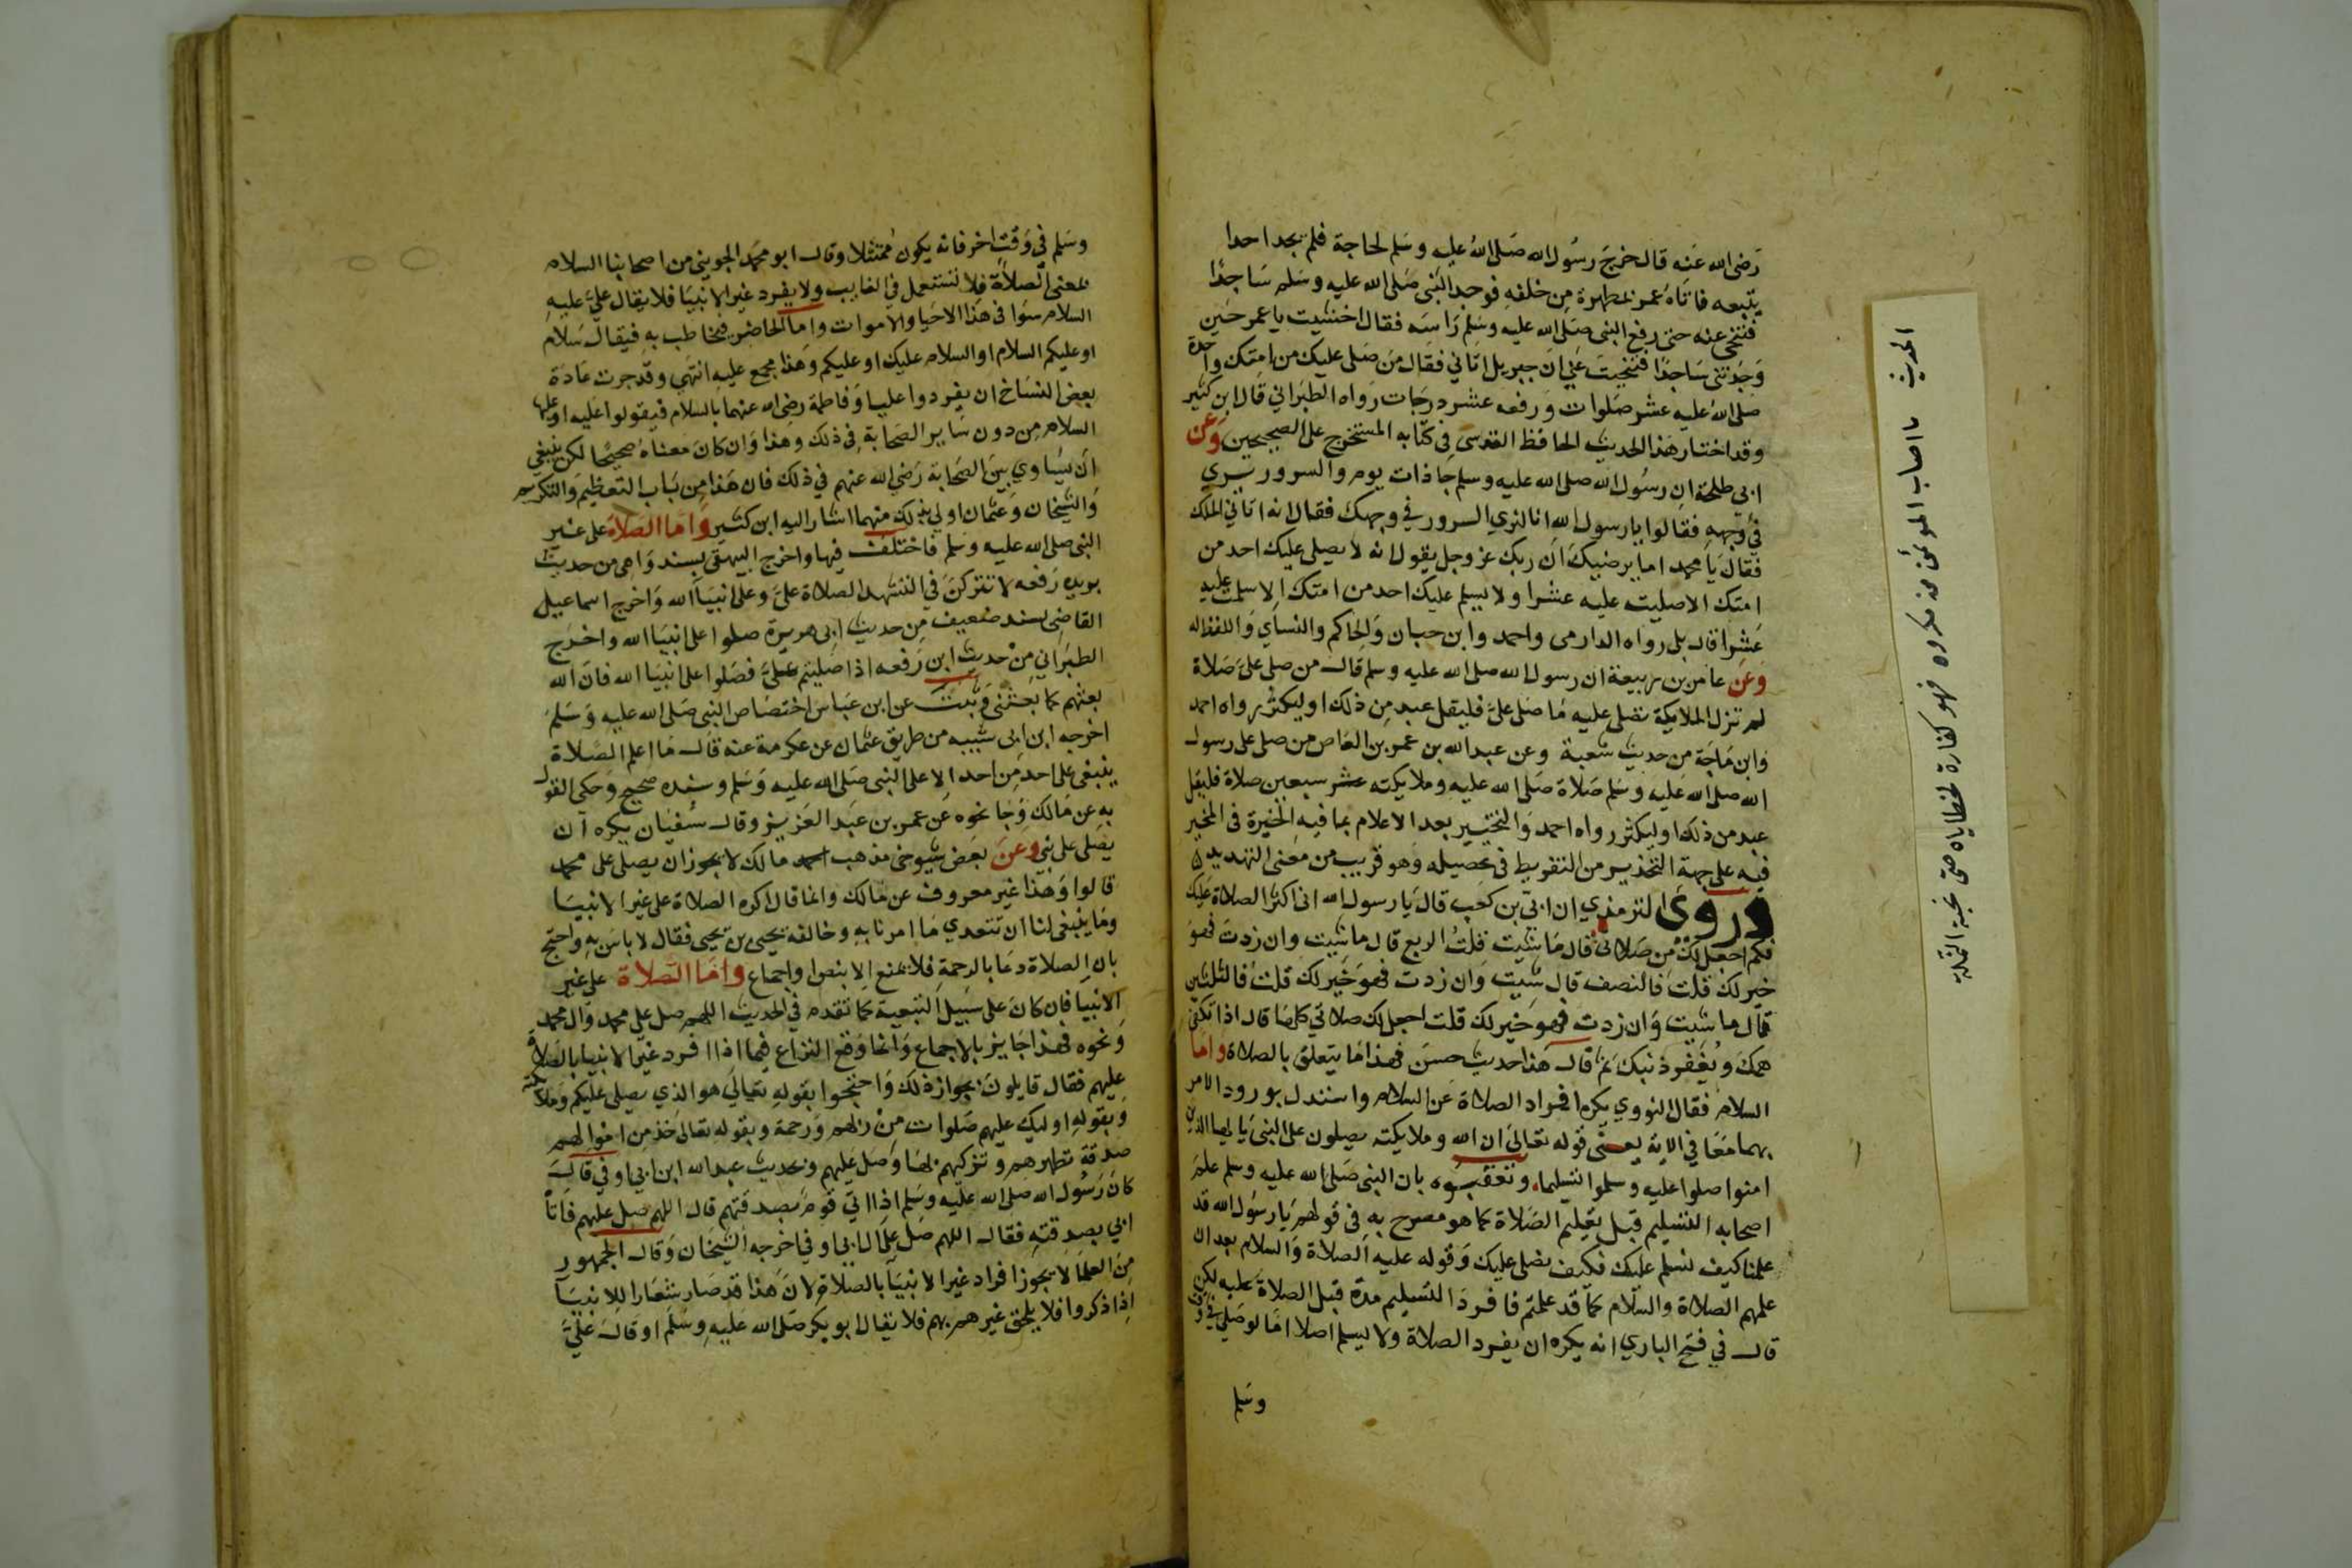 رضى الله عنه قال خرج رسول الله صلى الله عليه وسلم لحاجة فلم يجد احدا
يتبعه فاتاه عمر بمطهرة من خلفه فوجد النبى صلى الله عليه وسلم ساجدا
فتنحى عنه حتى رفع النبى صلى الله عليه وسلم راسه فقال احسنت يا عمر حين
وجدتنى ساجدا فتنحيت عنى ان جبريل اتانى فقال من صلى عليك من امتك واحدة
صلى الله عليه عشر صلوات ورفعه عشر درجات رواه الطبرانى قال ابن كثير
وقد اختار هذا الحديث الحافظ المقدسى فى كتابه المستخرج على الصحيحين وعن
ابى طلحة ان رسول الله صلى الله عليه وسلم جا ذات يوم والسرور يرى
فى وجهه فقالوا يا رسول الله انا لنرى السرور في وجهك فقال انه اتانى الملك
فقال يا محمد اما يرضيك ان ربك عز وجل يقول انه لا يصلى عليك احد من
امتك الا صليت عليه عشرا ولا يسلم عليك احد من امتك الا سلمت عليه
عشرا قال بلى رواه الدارمى واحمد وابن حبان والحاكم والنساى واللفظ له
وعن عامر بن ربيعة ان رسول الله صلى الله عليه وسلم قال من صلى على صلاة
لم تزل الملايكة تصلى عليه ما صلى على فليقل عبد من ذلك او ليكثر رواه احمد
وابن ماجة من حديث شعبة وعن عبد الله بن عمرو بن العاص من صلى على رسول
الله صلى الله عليه وسلم صلاة صلى الله عليه وملايكته عشر سبعين صلاة فليقل
عبد من ذلك او ليكثر رواه احمد والتخيير بعد الاعلام بما فيه الخيرة فى المخير
فيه على جهة التحذير من التفريط فى تحصيله وهو قريب من معنى التهديد
وروى الترمذي ان ابى بن كعب قال يا رسول الله انى اكثر الصلاة عليك
فكم اجعل لك من صلاتى قال ما شيت قلت الربع قال ما شيت وان زدت فهو
خير لك قلت فالنصف قال شيت وان زدت فهو خير لك قلت فالثلثين
قال ما شيت وان زدت فهو خير لك قلت اجعل لك صلاتى كلها قال اذا تكفى
همك ويغفر ذنبك ثم قال هذا حديث حسن فهذا ما يتعلق بالصلاة واما
السلام فقال النووي يكره افراد الصلاة عن السلام واستدل بورود الامر
بهما معا في الاية يعنى قوله تعالى ان الله وملايكته يصلون على النبى يا ايها الذين
امنوا صلوا عليه وسلموا تسليما وتعقبوه بان النبى صلى الله عليه وسلم علم
اصحابه التسليم قبل تعليم الصلاة كما هو مصرح به فى قولهم يا رسول الله قد
علمنا كيف نسلم عليك فكيف نصلى عليك وقوله عليه الصلاة والسلام بعد ان
علمهم الصلاة والسلام كما قد علمتم فافرد التسليم مدة قبل الصلاة عليه لكن
قال في فتح الباري انه يكره ان يفرد الصلاة ولا يسلم اصلا اما لو صلى في وقت
وسلم
الحديث ما اصاب المؤمن من مكروه فهو كفارة لخطاياه حتى نخبة النملة
وسلم فى وقت اخر فانه يكون ممتثلا وقال ابو محمد الجوينى من اصحابنا السلام
بمعنى الصلاة فلا تستعمل في الغايب ولا يفرد غير الانبيا فلا يقال على عليه
السلام سوا فى هذا الاحيا والاموات واما الحاضر فيخاطب به فيقال سلام
او عليكم السلام او السلام عليك او عليكم وهذا مجمع عليه انتهى وقد جرت عادة
بعض النساخ ان يفردوا عليا وفاطمة رضى الله عنهما بالسلام فيقولوا عليه او عليها
السلام من دون ساير الصحابة فى ذلك وهذا وان كان معناه صحيحا لكن ينبغى
ان يساوى بين الصحابة رضى الله عنهم في ذلك فان هذا من باب التعظيم والتكريم
والشيخان وعثمان اولى بذلك منهما اشار اليه ابن كثير واما الصلاة على غير
النبى صلى الله عليه وسلم فاختلف فيها واخرج البيهقى بسند واهى من حديث
بريده رفعه لا تتركن فى التشهد الصلاة على وعلى انبيا الله واخرج اسماعيل
القاضى بسند ضعيف من حديث ابى هريرة صلوا على انبيا الله واخرج
الطبرانى من حديث ابن رفعه اذا صليتم على فصلوا على انبيا الله فان الله
بعثهم كما بعثنى وثبت عن ابن عباس اختصاص النبى صلى الله عليه وسلم
اخرجه ابن ابى شيبه من طريق عثمان عن عكرمة عنه قال ما اعلم الصلاة
ينبغى على احد من احد الا على النبى صلى الله عليه وسلم وسنده صحيح وحكى القول
به عن مالك وجا نحوه عن عمر بن عبد العزيز وقال سفيان يكره ان
يصلى على نبى وعن بعض شيوخى مذهب احمد مالك لا يجوز ان يصلى على محمد
قالوا وهذا غير معروف عن مالك وانما قال اكره الصلاة على غير الانبيا
وما ينبغى لنا ان نتعدي ما امرنا به وخالفه يحيى بن يحيى فقال لا باس به واحتج
بان الصلاة دعا بالرحمة فلا يمنع الا بنص او اجماع واما الصلاة على غير
الانبيا فان كان على سبيل التبعية كما تقدم فى الحديث اللهم صل على محمد وال محمد
ونحوه فهذا جايز بالاجماع وانما وقع النزاع فيما اذا افرد غير الانبيا بالصلاة
عليهم فقال قايلون بجواز ذلك واحتجوا بقوله تعالى هو الذي يصلى عليكم وملايكته
وبقوله اوليك عليهم صلوات من ربهم ورحمة وبقوله تعالى خذ من اموالهم
صدقة تطهرهم وتزكيهم بها وصل عليهم وبحديث عبد الله ابن ابى اوفى قال
كان رسول الله صلى الله عليه وسلم اذا اتى قوم بصدقتهم قال اللهم صل عليهم فاتا
ابى بصدقته فقال اللهم صل على ال ابى اوفى اخرجه الشيخان وقال الجمهور
من العلما لا يجوز افراد غير الانبيا بالصلاة لان هذا قد صار شعارا للانبيا
اذا ذكروا فلا يلحق غيرهم بهم فلا يقال ابو بكر صلى الله عليه وسلم او قال على